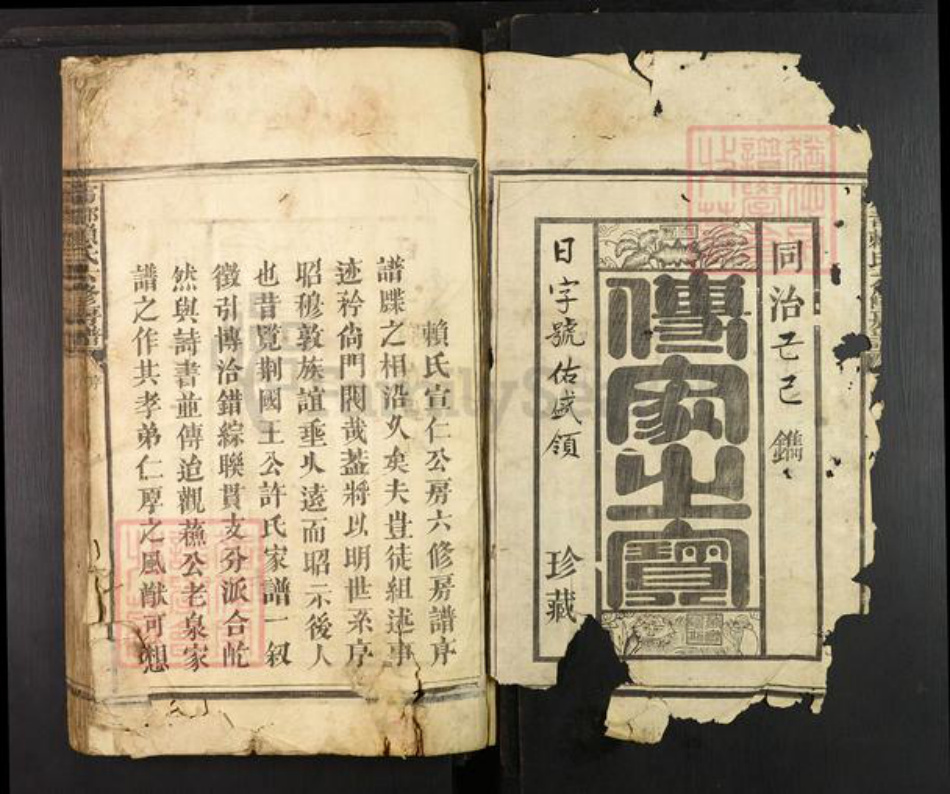 同治己巳鐫
傳家之寶
日字號佑盛領 珍藏
賴氏宣仁公房六修房譜序
譜牒之相沿久矣夫豈徒組述事
迹矜尚門閥哉蓋將以明世系序
昭穆敦族誼垂久遠而昭示後人
也昔覽荆國王公許氏家譜一叙
徵引博洽錯綜聯貫支分派合屹
然與詩書並傳迨觀蘓公老泉家
譜之作其孝弟仁厚之風猷可想
賴氏六修房譜
FamilySearch